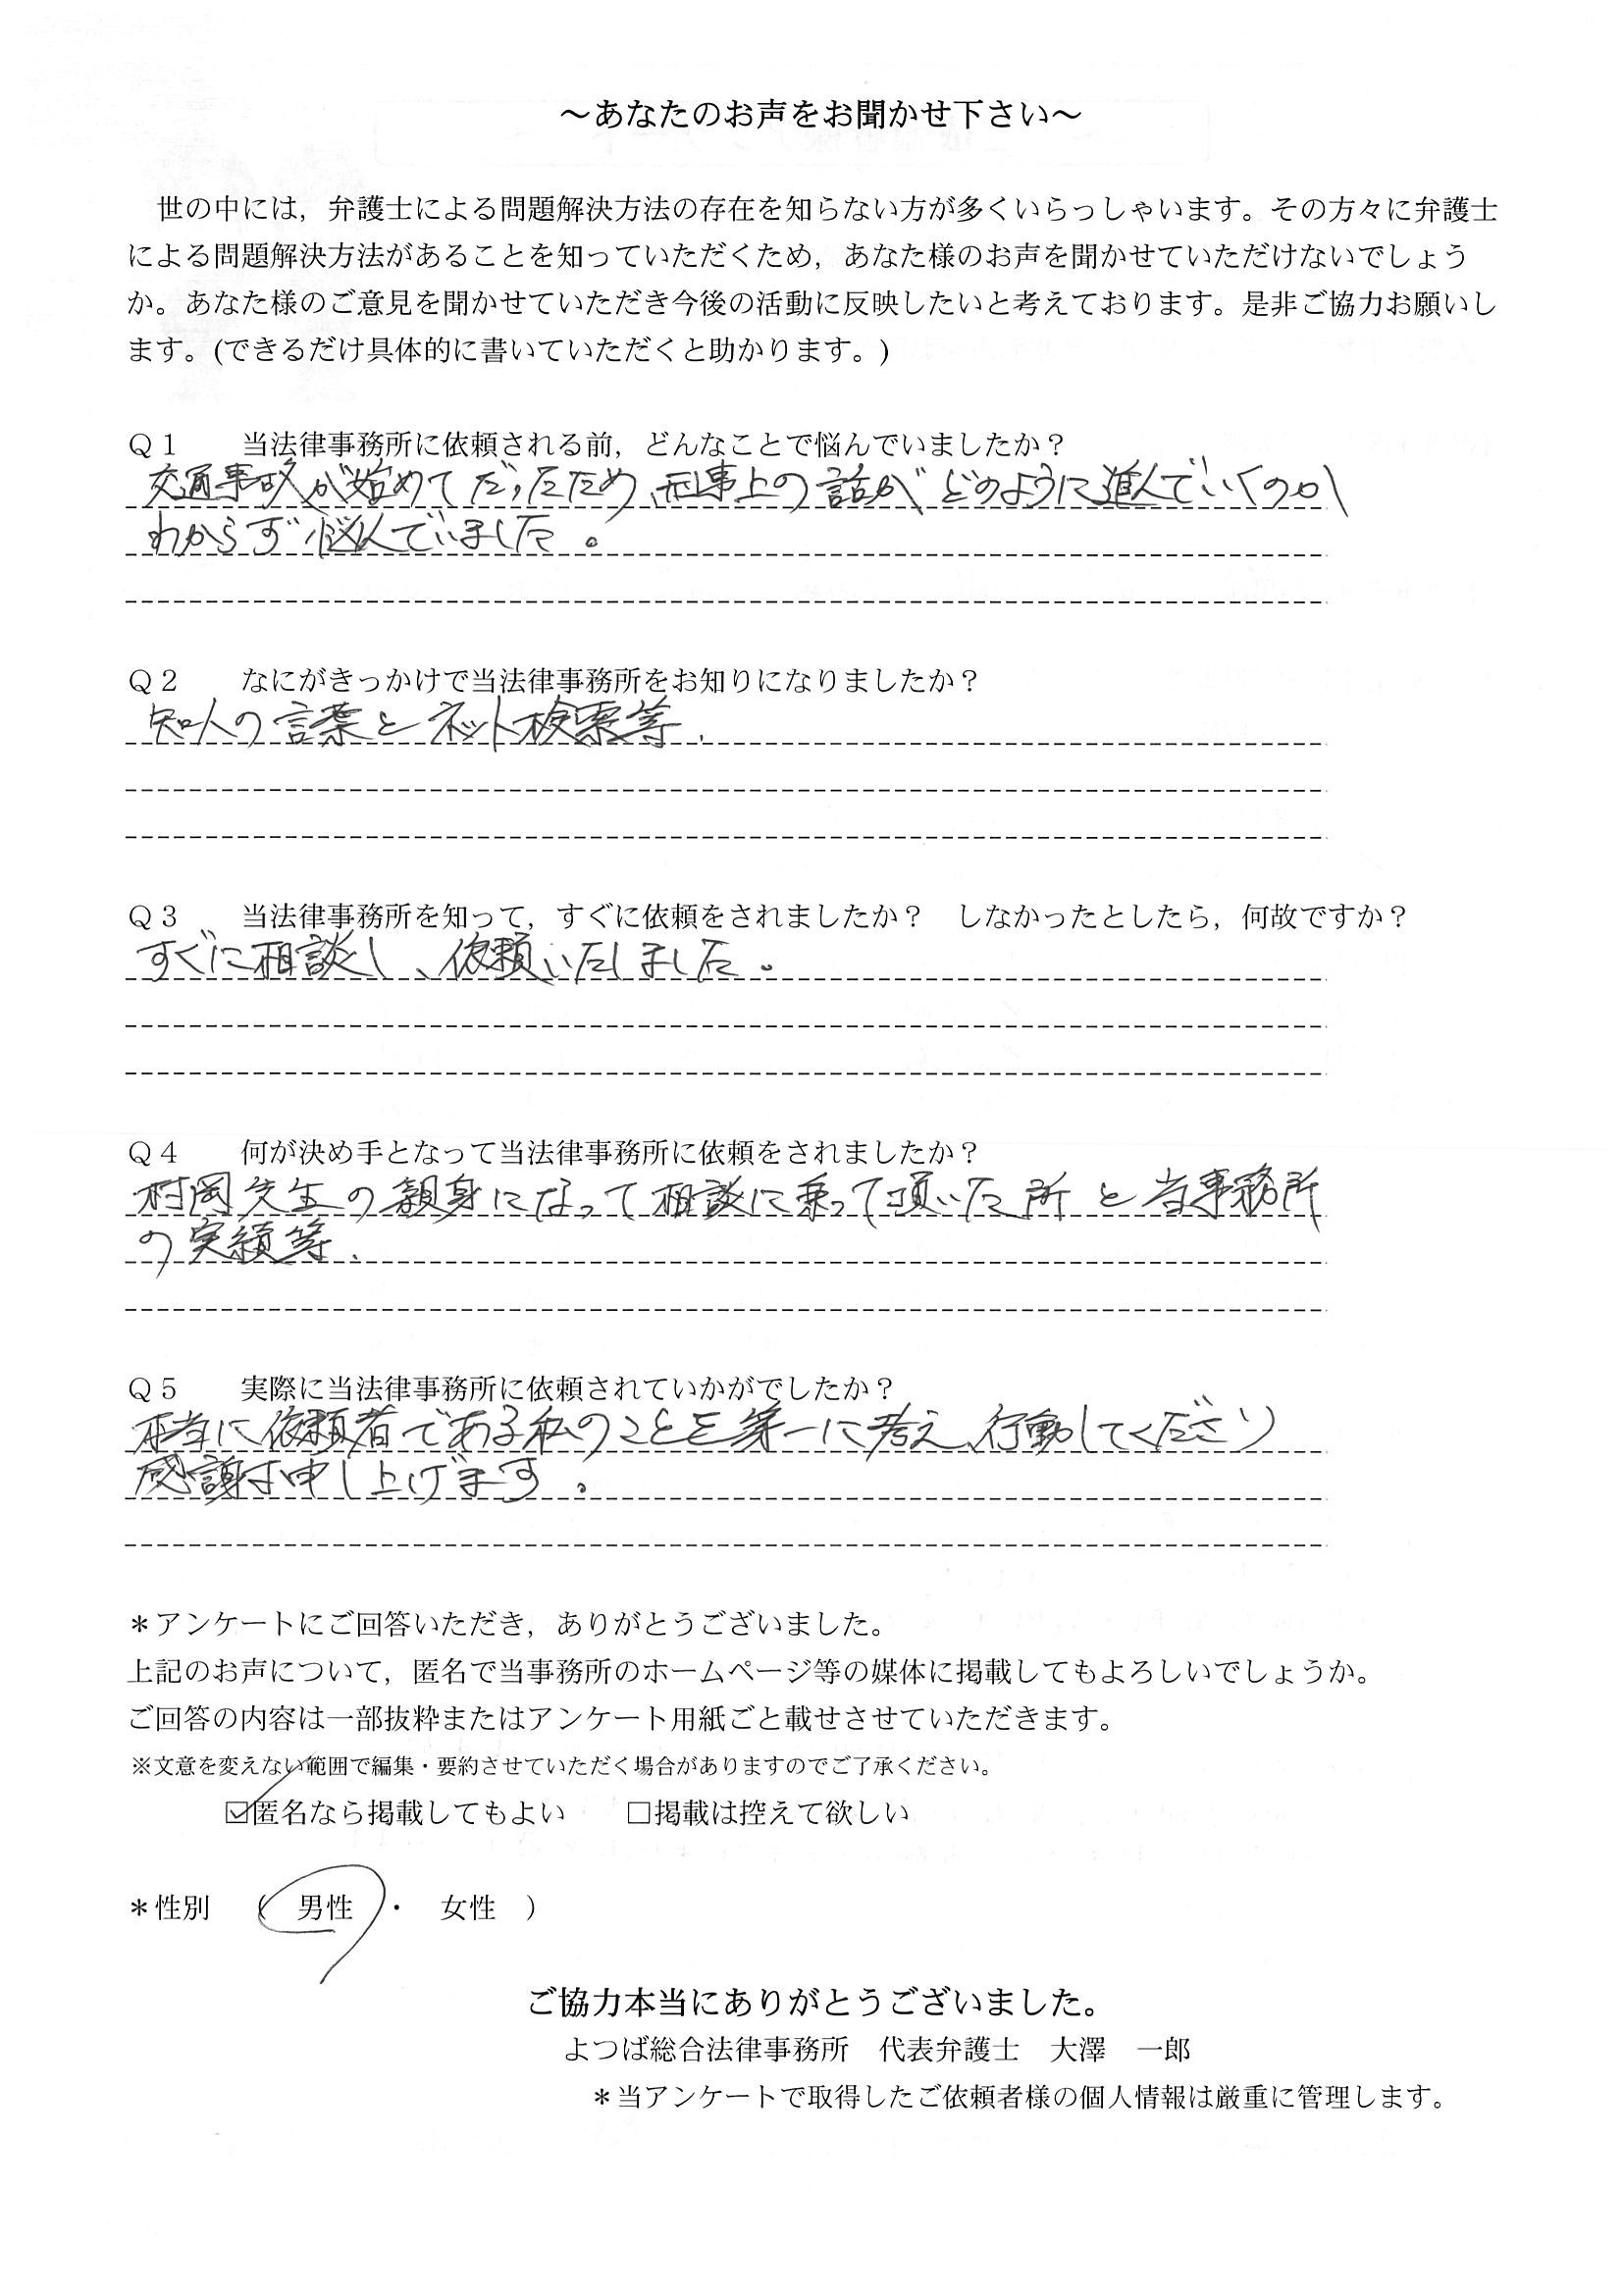 ～あなたのお声をお聞かせ下さい～
世の中には，弁護士による問題解決方法の存在を知らない方が多くいらっしゃいます。その方々に弁護士
による問題解決方法があることを知っていただくため，あなた様のお声を聞かせていただけないでしょう
か。あなた様のご意見を聞かせていただき今後の活動に反映したいと考えております。是非ご協力お願いし
ます。(できるだけ具体的に書いていただくと助かります。)
Ｑ１　　当法律事務所に依頼される前，どんなことで悩んでいましたか？
交通事故が始めてだったため、刑事上の話がどのように進んでいくのか
わからず悩んでいました。
Ｑ２　　なにがきっかけで当法律事務所をお知りになりましたか？
知人の言葉とネット検索等.
Ｑ３　　当法律事務所を知って，すぐに依頼をされましたか？　しなかったとしたら，何故ですか？
すぐに相談し、依頼いたしました。
Ｑ４　　何が決め手となって当法律事務所に依頼をされましたか？
村岡先生の親身になって相談に乗って頂いた所と当事務所
の実績等.
Ｑ５　　実際に当法律事務所に依頼されていかがでしたか？
本当に依頼者である私のことを第一に考え、行動してくださり
感謝申し上げます。
＊アンケートにご回答いただき，ありがとうございました。
上記のお声について，匿名で当事務所のホームページ等の媒体に掲載してもよろしいでしょうか。
ご回答の内容は一部抜粋またはアンケート用紙ごと載せさせていただきます。
※文意を変えない範囲で編集・要約させていただく場合がありますのでご了承ください。
☑匿名なら掲載してもよい　　□掲載は控えて欲しい
＊性別　（　男性　・　女性　）
ご協力本当にありがとうございました。
よつば総合法律事務所　代表弁護士　大澤　一郎
＊当アンケートで取得したご依頼者様の個人情報は厳重に管理します。